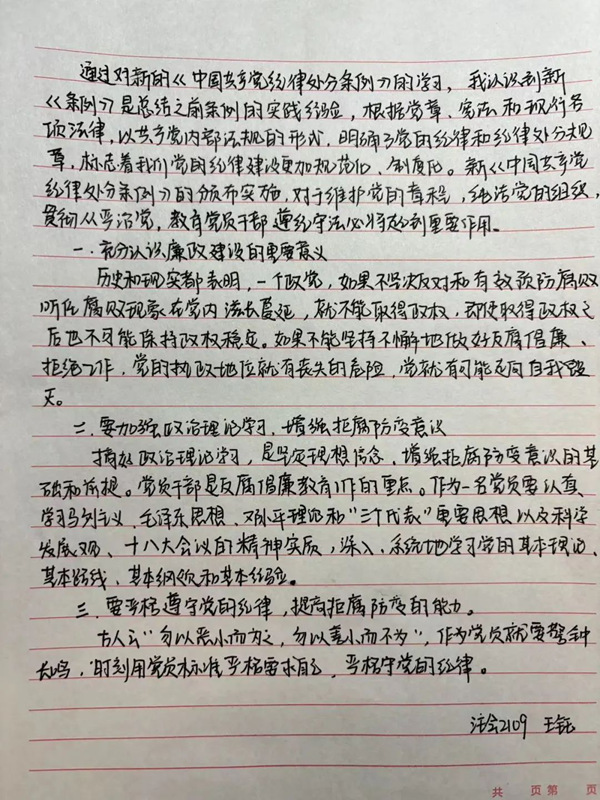 通过对新的《中国共产党纪律处分条例》的学习，我认识到新
《条例》是总结之前条例的实践经验，根据党章、宪法和现行各
项法律，以共产党内部法规的形式，明确了党的纪律和纪律处分规
章，标志着我们党的纪律建设更加规范化、制度化。新《中国共产党
纪律处分条例》的颁布实施，对于维护党的章程，纯洁党的组织，
贯彻从严治党，教育党员干部遵纪守法必将起到重要作用。
一.充分认识廉政建设的重要意义
历史和现实都表明，一个政党，如果不坚决反对和有效预防腐败
听任腐败现象在党内滋长蔓延，就不能取得政权，即使取得政权之
后也不可能保持政权稳定。如果不能坚持不懈地做好反腐倡廉、
拒绝工作，党的执政地位就有丧失的危险，党就有可能走向自我毁
灭。
二.要加强政治理论学习，增强拒腐防变意识
搞好政治理论学习，是坚定理想信念，增强拒腐防变意识的基
础和前提。党员干部是反腐倡廉教育工作的重点。作为一名党员要认真
学习马列主义、毛泽东思想、邓小平理论和“三个代表”重要思想以及科学
发展观、十八大会议的精神实质，深入、系统地学习党的基本理论、
基本路线、基本纲领和基本经验。
三.要严格遵守党的纪律，提高拒腐防变的能力。
古人云“勿以恶小而为之，勿以善小而不为”，作为党员就要警钟
长鸣，时刻用党员标准严格要求自己，严格守党的纪律。
注会2109 王钰
共 页 第 页